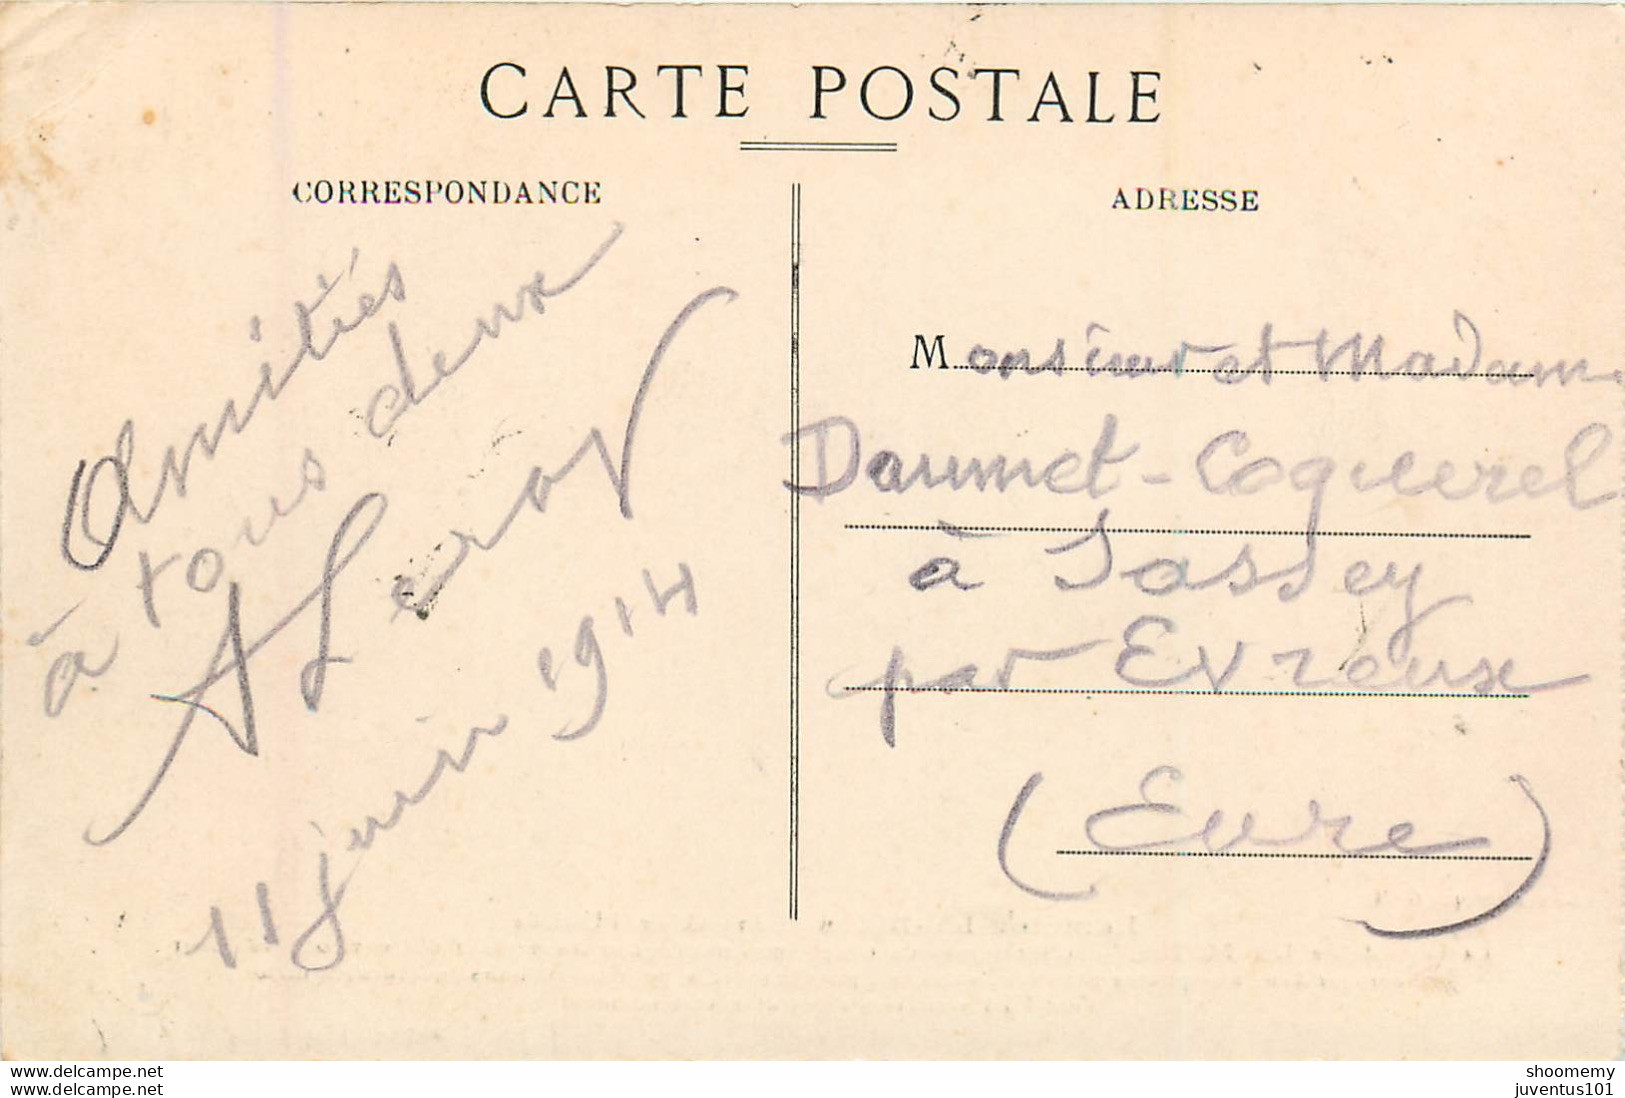 CARTE POSTALE
CORRESPONDANCE
Amitiés
à tous deux
A Leroy
11 juin 1914
ADRESSE
Monsieur et Madame
Daumet-Coquerel
à Sassey
par Evreux
(Eure)
www.delcampe.net
www.delcampe.net
shoomemy
juventus101